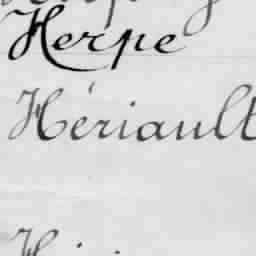 Herpe
Hériault